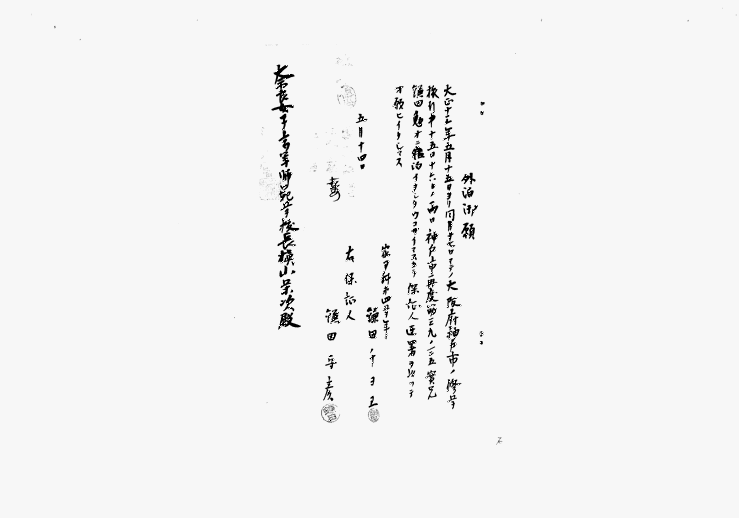 外泊御願
大正十三年五月十五日ヨリ同月十七日マデノ大阪府神戸市ノ修学
旅行中十五日十六日ノ両日神戸市再度筋三九ノ二五実兄
額田 方ニ宿泊イタシタウゴザイマスカラ保証人連署ヲ以ツテ
オ願ヒイタシマス
五月十四日
家事科第四学年
額田 トヨ
右保証人
額田
奈良女子高等師範学校長槇山栄次殿